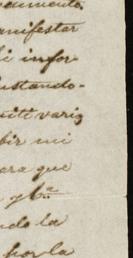 cumento.
anifestar
i infor-
ustando-
mitti vario
bir mi
ara que
y Cª
ndo la
por la